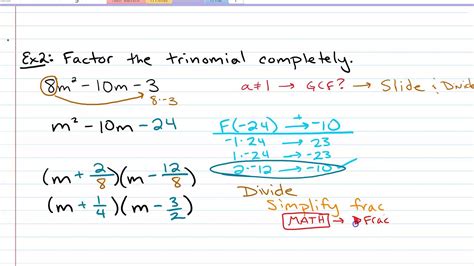 Ex2: Factor the trinomial completely.
8m² - 10m - 3
8·-3
a≠1 → GCF? → Slide & Divide
m² - 10m - 24
F(-24) → -10
-1·24 → 23
1·-24 → -23
2·-12 → -10 ✓
(m + 2/8)(m - 12/8)
(m + 1/4)(m - 3/2)
Divide
Simplify frac
MATH → ▶Frac